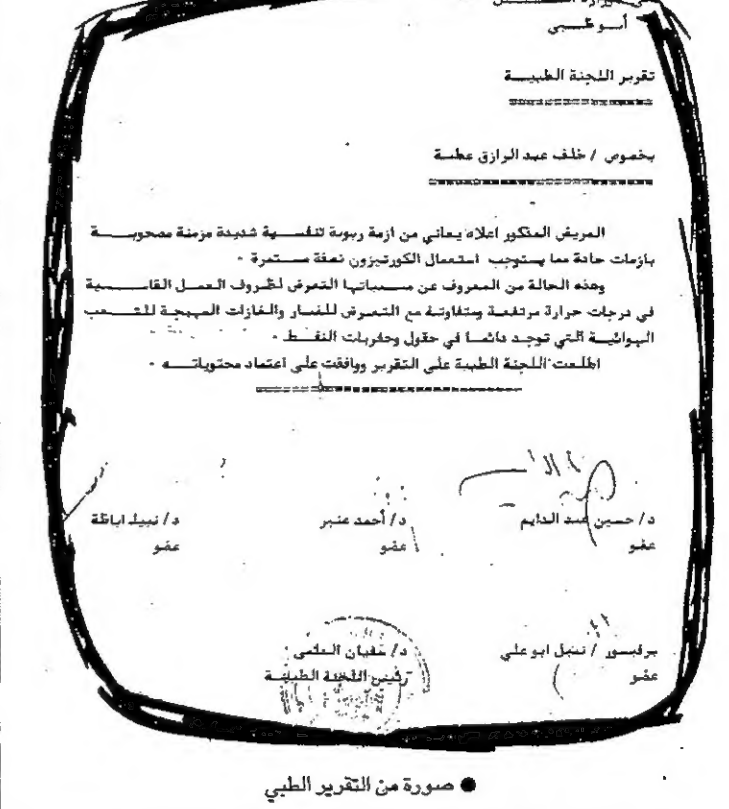 أبـو ظـبـي
تقرير اللجنة الطبيـة
بخصوص / خلف عبد الرازق عطيـة
المريض المذكور اعلاه يعاني من ازمة ربوية تنفسـية شديدة مزمنة مصحوبـة
بازمات حادة مما يستوجب استعمال الكورتيزون بصفة مسـتمرة .
وهذه الحالة من المعروف عن مسبباتها التعرض لظروف العمـل القاسـية
في درجات حرارة مرتفعـة ومتفاوتـة مع التعرض للغبار والغازات المهيجة للشـعب
الهوائيـة التي توجد دائمـا في حقول وحفريات النفـط .
اطلعت اللجنة الطبية على التقرير ووافقت على اعتماد محتوياتـه .
د/ حسين عبد الدايم
د/ أحمد عنبر
د/ نبيل اباظة
عضو
عضو
عضو
برفيسور / نبيل ابو علي
د/ سفيان
عضو
رئيس اللجنة الطبيـة
● صورة من التقرير الطبي